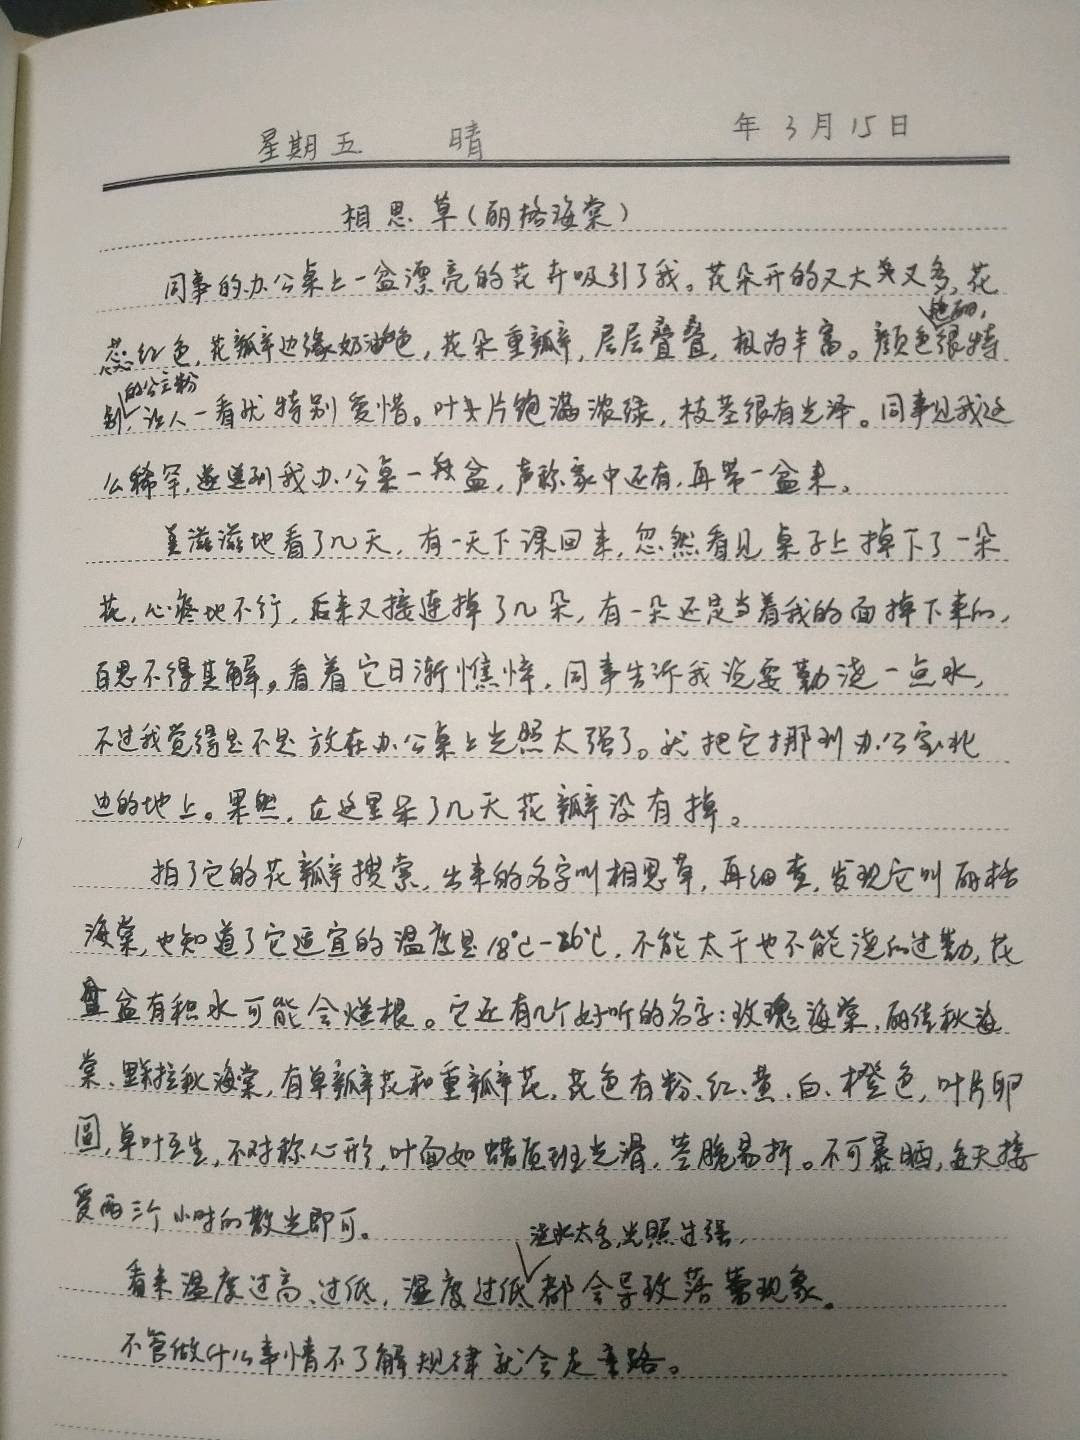 星期五 晴 年3月15日
相思草(丽格海棠)
同事的办公桌上一盆漂亮的花卉吸引了我。花朵开的又大又多,花
艳丽,
蕊红色,花瓣边缘奶油色,花朵重瓣,层层叠叠,极为丰富。颜色很特
的公主粉
别,让人一看就特别爱惜。叶片饱满浓绿,枝茎很有光泽。同事见我这
么稀罕,遂送到我办公桌一盆,声称家中还有,再带一盆来。
美滋滋地看了几天,有一天下课回来,忽然看见桌子上掉下了一朵
花,心疼地不行,后来又接连掉了几朵,有一朵还是当着我的面掉下来的,
百思不得其解。看着它日渐憔悴,同事告诉我说要勤浇一点水,
不过我觉得是不是放在办公桌上光照太强了。就把它挪到办公室北
边的地上。果然,在这里呆了几天花瓣没有掉。
拍了它的花瓣搜索,出来的名字叫相思草,再细查,发现它叫丽格
海棠,也知道了它适宜的温度是18℃-26℃,不能太干也不能浇的过勤,花
盆有积水可能会烂根。它还有几个好听的名字:玫瑰海棠、丽佳秋海
棠、里拉秋海棠,有单瓣花和重瓣花,花色有粉、红、黄、白、橙色,叶片卵
圆,单叶互生,不对称心形,叶面如蜡质班光滑,茎脆易折。不可暴晒,每天接
受两三个小时的散光即可。
浇水太多,光照过强,
看来温度过高、过低,湿度过低都会导致落蕾现象。
不管做什么事情不了解规律就会走弯路。